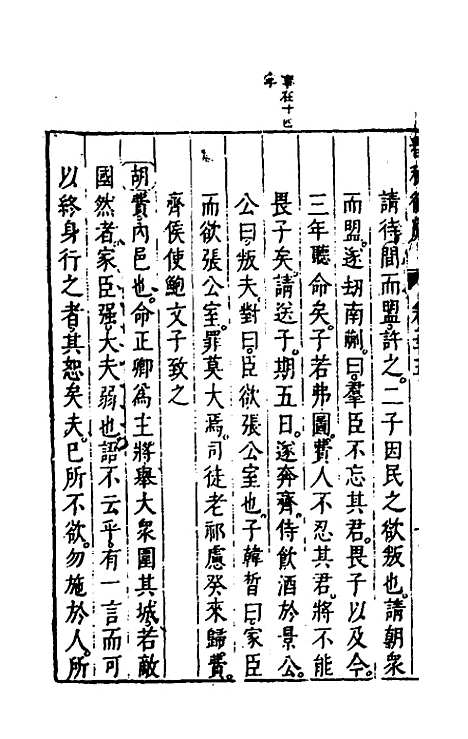 事在十四
年
請待間而盟許之二子因民之欲叛也請朝衆
而盟遂刼南蒯曰羣臣不忘其君畏子以及今
三年聽命矣子若弗圖費人不忍其君將不能
畏子矣請送子期五日遂奔齊侍飲酒於景公
公曰叛夫對曰臣欲張公室也子韓晳曰家臣
而欲張公室罪莫大焉司徒老祁慮癸來歸費
齊侯使鮑文子致之
胡費内邑也命正卿爲主將舉大衆圍其城若敵
國然者家臣强大夫弱也語不云乎有一言而可
以終身行之者其恕矣夫巳所不欲勿施於人所